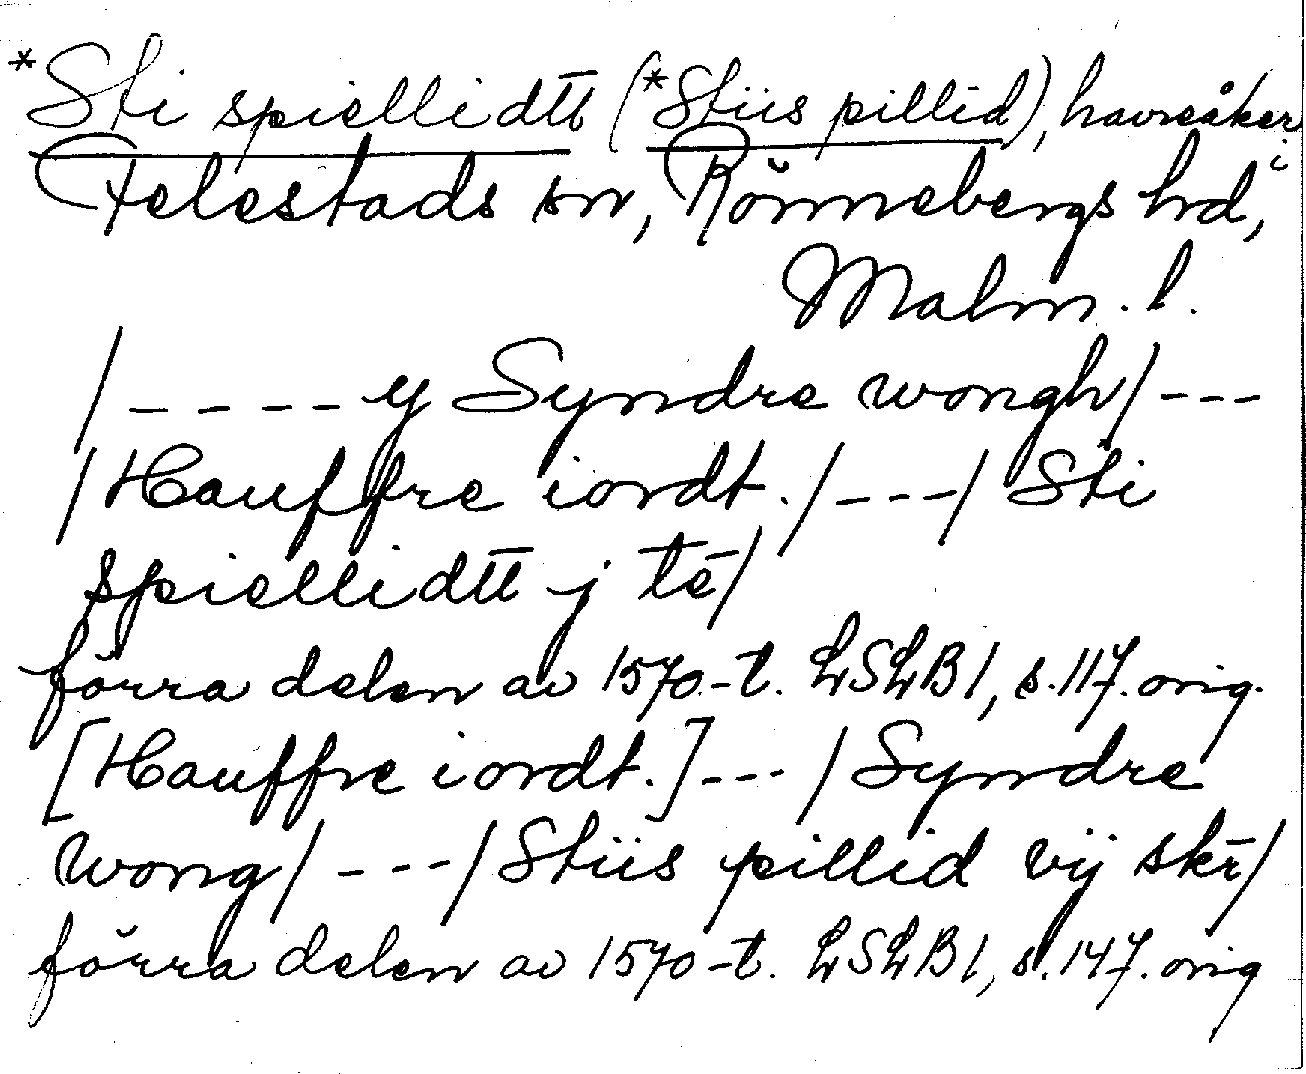 *Sti spiellidtt (*Stiis pillid), havreåker i
Felestads sn, Rönnebergs hrd,
Malm. l.
/ - - - - y Syndre wongh / - - -
/ Hauffre iordt. / - - - / Sti
spiellidtt j tē /
förra delen av 1570-t. LSLB1, s. 117. orig.
[Hauffre iordt.] - - - / Syndre
wong / - - - / Stiis pillid vij skr̄ /
förra delen av 1570-t. LSLB1, s. 147. orig